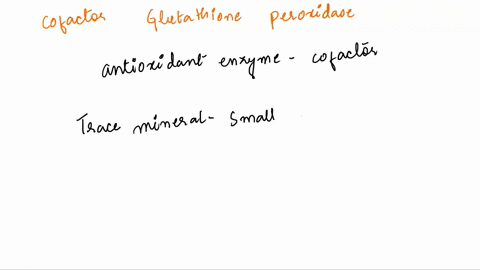 cofactor Glutathione peroxidase
antioxidant enzyme - cofactor
Trace mineral - small